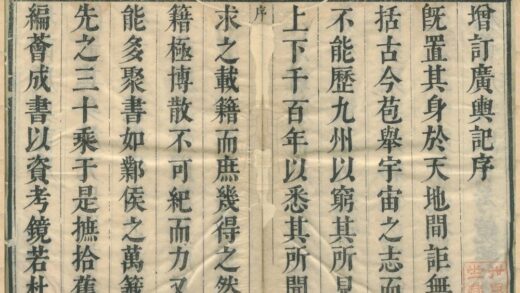 增訂廣輿記序
旣置其身於天地間詎無
括古今苞舉宇宙之志而
不能歷九州以窮其所見
上下千百年以悉其所聞
序
求之載籍而庶幾得之然
籍極博散不可紀而力又
能多聚書如鄴侯之萬籤
先之三十乘于是摭拾舊
編薈成書以資考鏡若杜